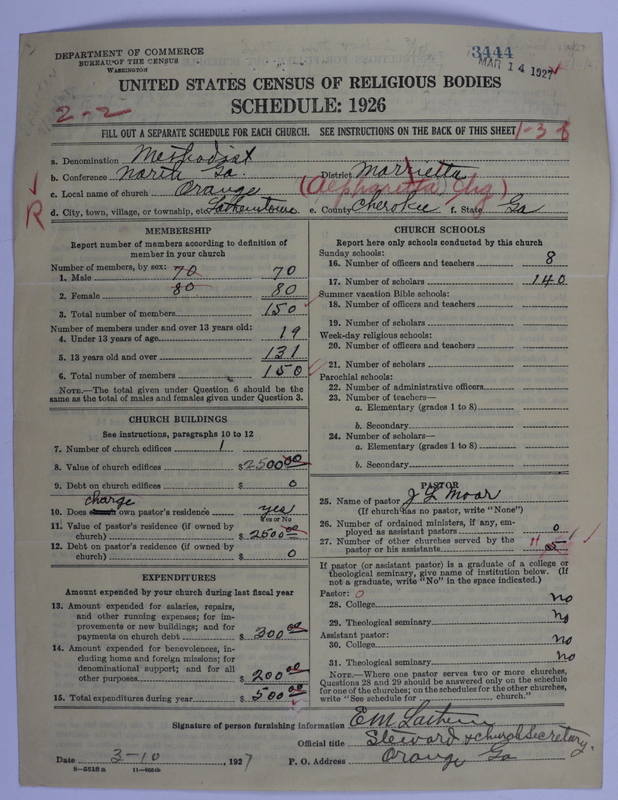 DEPARTMENT OF COMMERCE
BUREAU OF THE CENSUS
WASHINGTON
3444
MAR 14 1927
UNITED STATES CENSUS OF RELIGIOUS BODIES
SCHEDULE: 1926
2-2
FILL OUT A SEPARATE SCHEDULE FOR EACH CHURCH. SEE INSTRUCTIONS ON THE BACK OF THIS SHEET
1-3
a. Denomination Methodist
b. Conference North Ga. District Marrietta
(Alpharetta Chg)
c. Local name of church Orange
d. City, town, village, or township, etc. Lathemtown e. County Cherokee f. State Ga
R
MEMBERSHIP
Report number of members according to definition of
member in your church
Number of members, by sex:
1. Male 70 70
2. Female 80 80
3. Total number of members 150
Number of members under and over 13 years old:
4. Under 13 years of age 19
5. 13 years old and over 131
6. Total number of members 150
NOTE.—The total given under Question 6 should be the
same as the total of males and females given under Question 3.
CHURCH BUILDINGS
See instructions, paragraphs 10 to 12
7. Number of church edifices 1
8. Value of church edifices $2500.00
9. Debt on church edifices $ 0
charge
10. Does church own pastor's residence yes
Yes or No
11. Value of pastor's residence (if owned by
church) $ 2500.00
12. Debt on pastor's residence (if owned by
church) $ 0
EXPENDITURES
Amount expended by your church during last fiscal year
13. Amount expended for salaries, repairs,
and other running expenses; for im-
provements or new buildings; and for
payments on church debt $ 300.00
14. Amount expended for benevolences, in-
cluding home and foreign missions; for
denominational support; and for all
other purposes $ 200.00
15. Total expenditures during year $ 500.00
CHURCH SCHOOLS
Report here only schools conducted by this church
Sunday schools:
16. Number of officers and teachers 8
17. Number of scholars 140
Summer vacation Bible schools:
18. Number of officers and teachers
19. Number of scholars
Week-day religious schools:
20. Number of officers and teachers
21. Number of scholars
Parochial schools:
22. Number of administrative officers
23. Number of teachers—
a. Elementary (grades 1 to 8)
b. Secondary
24. Number of scholars—
a. Elementary (grades 1 to 8)
b. Secondary
PASTOR
25. Name of pastor J L Moor
(If church has no pastor, write "None")
26. Number of ordained ministers, if any, em-
ployed as assistant pastors 0
27. Number of other churches served by the
pastor or his assistants 5
If pastor (or assistant pastor) is a graduate of a college or
theological seminary, give name of institution below. (If
not a graduate, write "No" in the space indicated.)
Pastor: 0
28. College no
29. Theological seminary no
Assistant pastor:
30. College no
31. Theological seminary no
NOTE.—Where one pastor serves two or more churches,
Questions 28 and 29 should be answered only on the schedule
for one of the churches; on the schedules for the other churches,
write "See schedule for church."
Signature of person furnishing information E M Lathem
Official title Steward & church Secretary.
Date 3-10, 1927 P. O. Address Orange Ga
8—5518 a 11—9561b